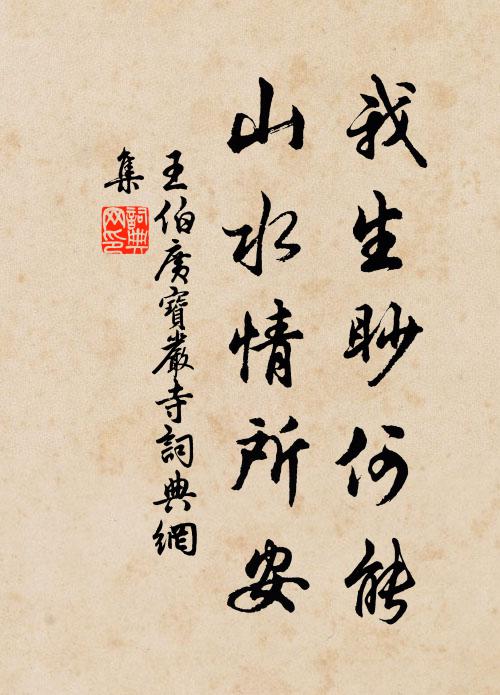 我生眇何能
山水情所安
王伯廣寶巖寺詞典網
集
詞典网印